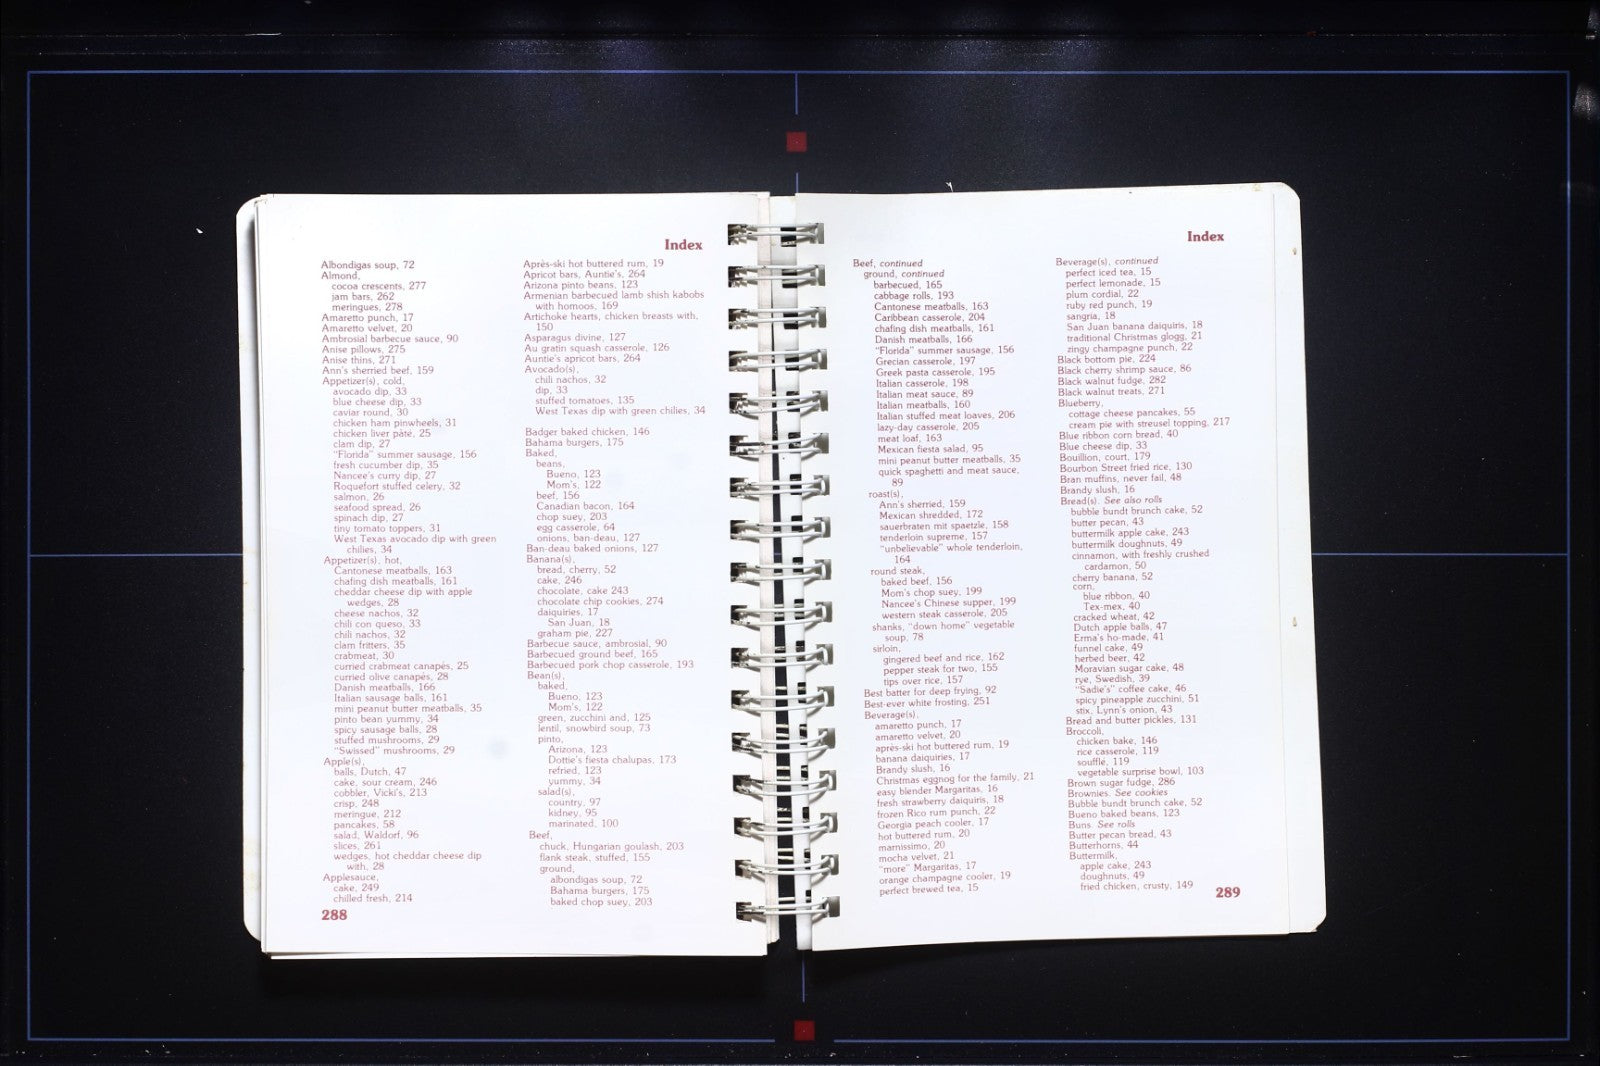 Index
Albondigas soup, 72
Almond,
cocoa crescents, 277
jam bars, 262
meringues, 278
Amaretto punch, 17
Amaretto velvet, 20
Ambrosial barbecue sauce, 90
Anise pillows, 275
Anise thins, 271
Ann's sherried beef, 159
Appetizer(s), cold,
avocado dip, 33
blue cheese dip, 33
caviar round, 30
chicken ham pinwheels, 31
chicken liver pâté, 25
clam dip, 27
"Florida" summer sausage, 156
fresh cucumber dip, 35
Nancee's curry dip, 27
Roquefort stuffed celery, 32
salmon, 26
seafood spread, 26
spinach dip, 27
tiny tomato toppers, 31
West Texas avocado dip with green
chilies, 34
Appetizer(s), hot,
Cantonese meatballs, 163
chafing dish meatballs, 161
cheddar cheese dip with apple
wedges, 28
cheese nachos, 32
chili con queso, 33
chili nachos, 32
clam fritters, 35
crabmeat, 30
curried crabmeat canapés, 25
curried olive canapés, 28
Danish meatballs, 166
Italian sausage balls, 161
mini peanut butter meatballs, 35
pinto bean yummy, 34
spicy sausage balls, 28
stuffed mushrooms, 29
"Swissed" mushrooms, 29
Apple(s),
balls, Dutch, 47
cake, sour cream, 246
cobbler, Vicki's, 213
crisp, 248
meringue, 212
pancakes, 58
salad, Waldorf, 96
slices, 261
wedges, hot cheddar cheese dip
with, 28
Applesauce,
cake, 249
chilled fresh, 214
288
Après-ski hot buttered rum, 19
Apricot bars, Auntie's, 264
Arizona pinto beans, 123
Armenian barbecued lamb shish kabobs
with homoos, 169
Artichoke hearts, chicken breasts with,
150
Asparagus divine, 127
Au gratin squash casserole, 126
Auntie's apricot bars, 264
Avocado(s),
chili nachos, 32
dip, 33
stuffed tomatoes, 135
West Texas dip with green chilies, 34
Badger baked chicken, 146
Bahama burgers, 175
Baked,
beans,
Bueno, 123
Mom's, 122
beef, 156
Canadian bacon, 164
chop suey, 203
egg casserole, 64
onions, ban-deau, 127
Ban-deau baked onions, 127
Banana(s),
bread, cherry, 52
cake, 246
chocolate, cake 243
chocolate chip cookies, 274
daiquiries, 17
San Juan, 18
graham pie, 227
Barbecue sauce, ambrosial, 90
Barbecued ground beef, 165
Barbecued pork chop casserole, 193
Bean(s),
baked,
Bueno, 123
Mom's, 122
green, zucchini and, 125
lentil, snowbird soup, 73
pinto,
Arizona, 123
Dottie's fiesta chalupas, 173
refried, 123
yummy, 34
salad(s),
country, 97
kidney, 95
marinated, 100
Beef,
chuck, Hungarian goulash, 203
flank steak, stuffed, 155
ground,
albondigas soup, 72
Bahama burgers, 175
baked chop suey, 203
Index
Beef, continued
ground, continued
barbecued, 165
cabbage rolls, 193
Cantonese meatballs, 163
Caribbean casserole, 204
chafing dish meatballs, 161
Danish meatballs, 166
"Florida" summer sausage, 156
Grecian casserole, 197
Greek pasta casserole, 195
Italian casserole, 198
Italian meat sauce, 89
Italian meatballs, 160
Italian stuffed meat loaves, 206
lazy-day casserole, 205
meat loaf, 163
Mexican fiesta salad, 95
mini peanut butter meatballs, 35
quick spaghetti and meat sauce,
89
roast(s),
Ann's sherried, 159
Mexican shredded, 172
sauerbraten mit spaetzle, 158
tenderloin supreme, 157
"unbelievable" whole tenderloin,
164
round steak,
baked beef, 156
Mom's chop suey, 199
Nancee's Chinese supper, 199
western steak casserole, 205
shanks, "down home" vegetable
soup, 78
sirloin,
gingered beef and rice, 162
pepper steak for two, 155
tips over rice, 157
Best batter for deep frying, 92
Best-ever white frosting, 251
Beverage(s),
amaretto punch, 17
amaretto velvet, 20
après-ski hot buttered rum, 19
banana daiquiries, 17
Brandy slush, 16
Christmas eggnog for the family, 21
easy blender Margaritas, 16
fresh strawberry daiquiris, 18
frozen Rico rum punch, 22
Georgia peach cooler, 17
hot buttered rum, 20
marnissimo, 20
mocha velvet, 21
"more" Margaritas, 17
orange champagne cooler, 19
perfect brewed tea, 15
Beverage(s), continued
perfect iced tea, 15
perfect lemonade, 15
plum cordial, 22
ruby red punch, 19
sangria, 18
San Juan banana daiquiris, 18
traditional Christmas glogg, 21
zingy champagne punch, 22
Black bottom pie, 224
Black cherry shrimp sauce, 86
Black walnut fudge, 282
Black walnut treats, 271
Blueberry,
cottage cheese pancakes, 55
cream pie with streusel topping, 217
Blue ribbon corn bread, 40
Blue cheese dip, 33
Bouillion, court, 179
Bourbon Street fried rice, 130
Bran muffins, never fail, 48
Brandy slush, 16
Bread(s). See also rolls
bubble bundt brunch cake, 52
butter pecan, 43
buttermilk apple cake, 243
buttermilk doughnuts, 49
cinnamon, with freshly crushed
cardamon, 50
cherry banana, 52
corn,
blue ribbon, 40
Tex-mex, 40
cracked wheat, 42
Dutch apple balls, 47
Erma's ho-made, 41
funnel cake, 49
herbed beer, 42
Moravian sugar cake, 48
rye, Swedish, 39
"Sadie's" coffee cake, 46
spicy pineapple zucchini, 51
stix, Lynn's onion, 43
Bread and butter pickles, 131
Broccoli,
chicken bake, 146
rice casserole, 119
souffle, 119
vegetable surprise bowl, 103
Brown sugar fudge, 286
Brownies. See cookies
Bubble bundt brunch cake, 52
Bueno baked beans, 123
Buns. See rolls
Butter pecan bread, 43
Butterhorns, 44
Buttermilk,
apple cake, 243
doughnuts, 49
fried chicken, crusty, 149
289